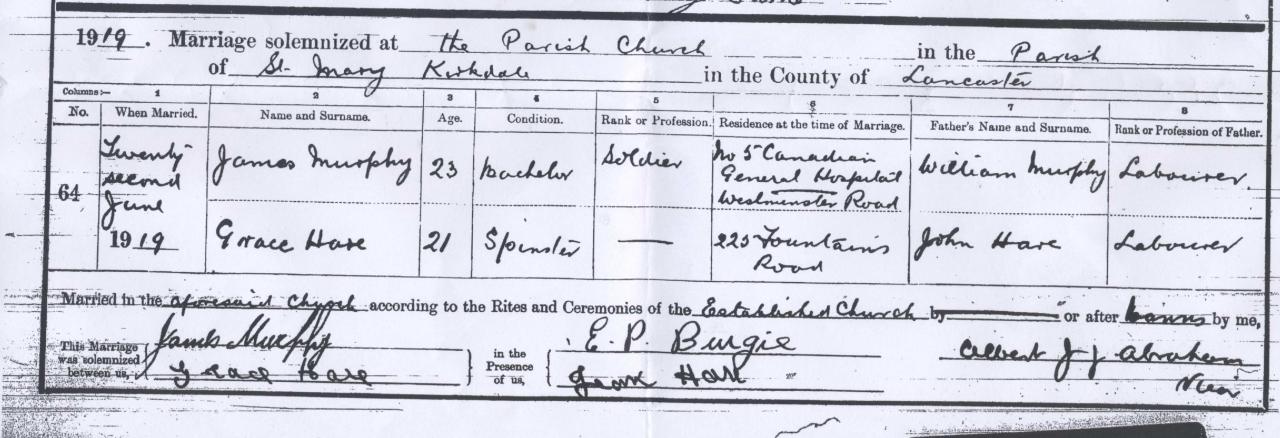 1919. Marriage solemnized at the Parish Church in the Parish
of St. Mary Kirkdale in the County of Lancaster
Columns:— 1 2 3 4 5 6 7 8
No. When Married. Name and Surname. Age. Condition. Rank or Profession. Residence at the time of Marriage. Father's Name and Surname. Rank or Profession of Father.
64
Twenty
second
June
1919
James Murphy 23 Bachelor Soldier
No 5 Canadian
General Hospital
Westminster Road
William Murphy Labourer.
Grace Hare 21 Spinster ——
225 Fountains
Road
John Hare Labourer
Married in the aforesaid Church according to the Rites and Ceremonies of the Established Church by —— or after banns by me,
This Marriage
was solemnized
between us,
James Murphy
Grace Hare
in the
Presence
of us,
E. P. Burgie
Hare
Albert J. J. Abraham
Vicar